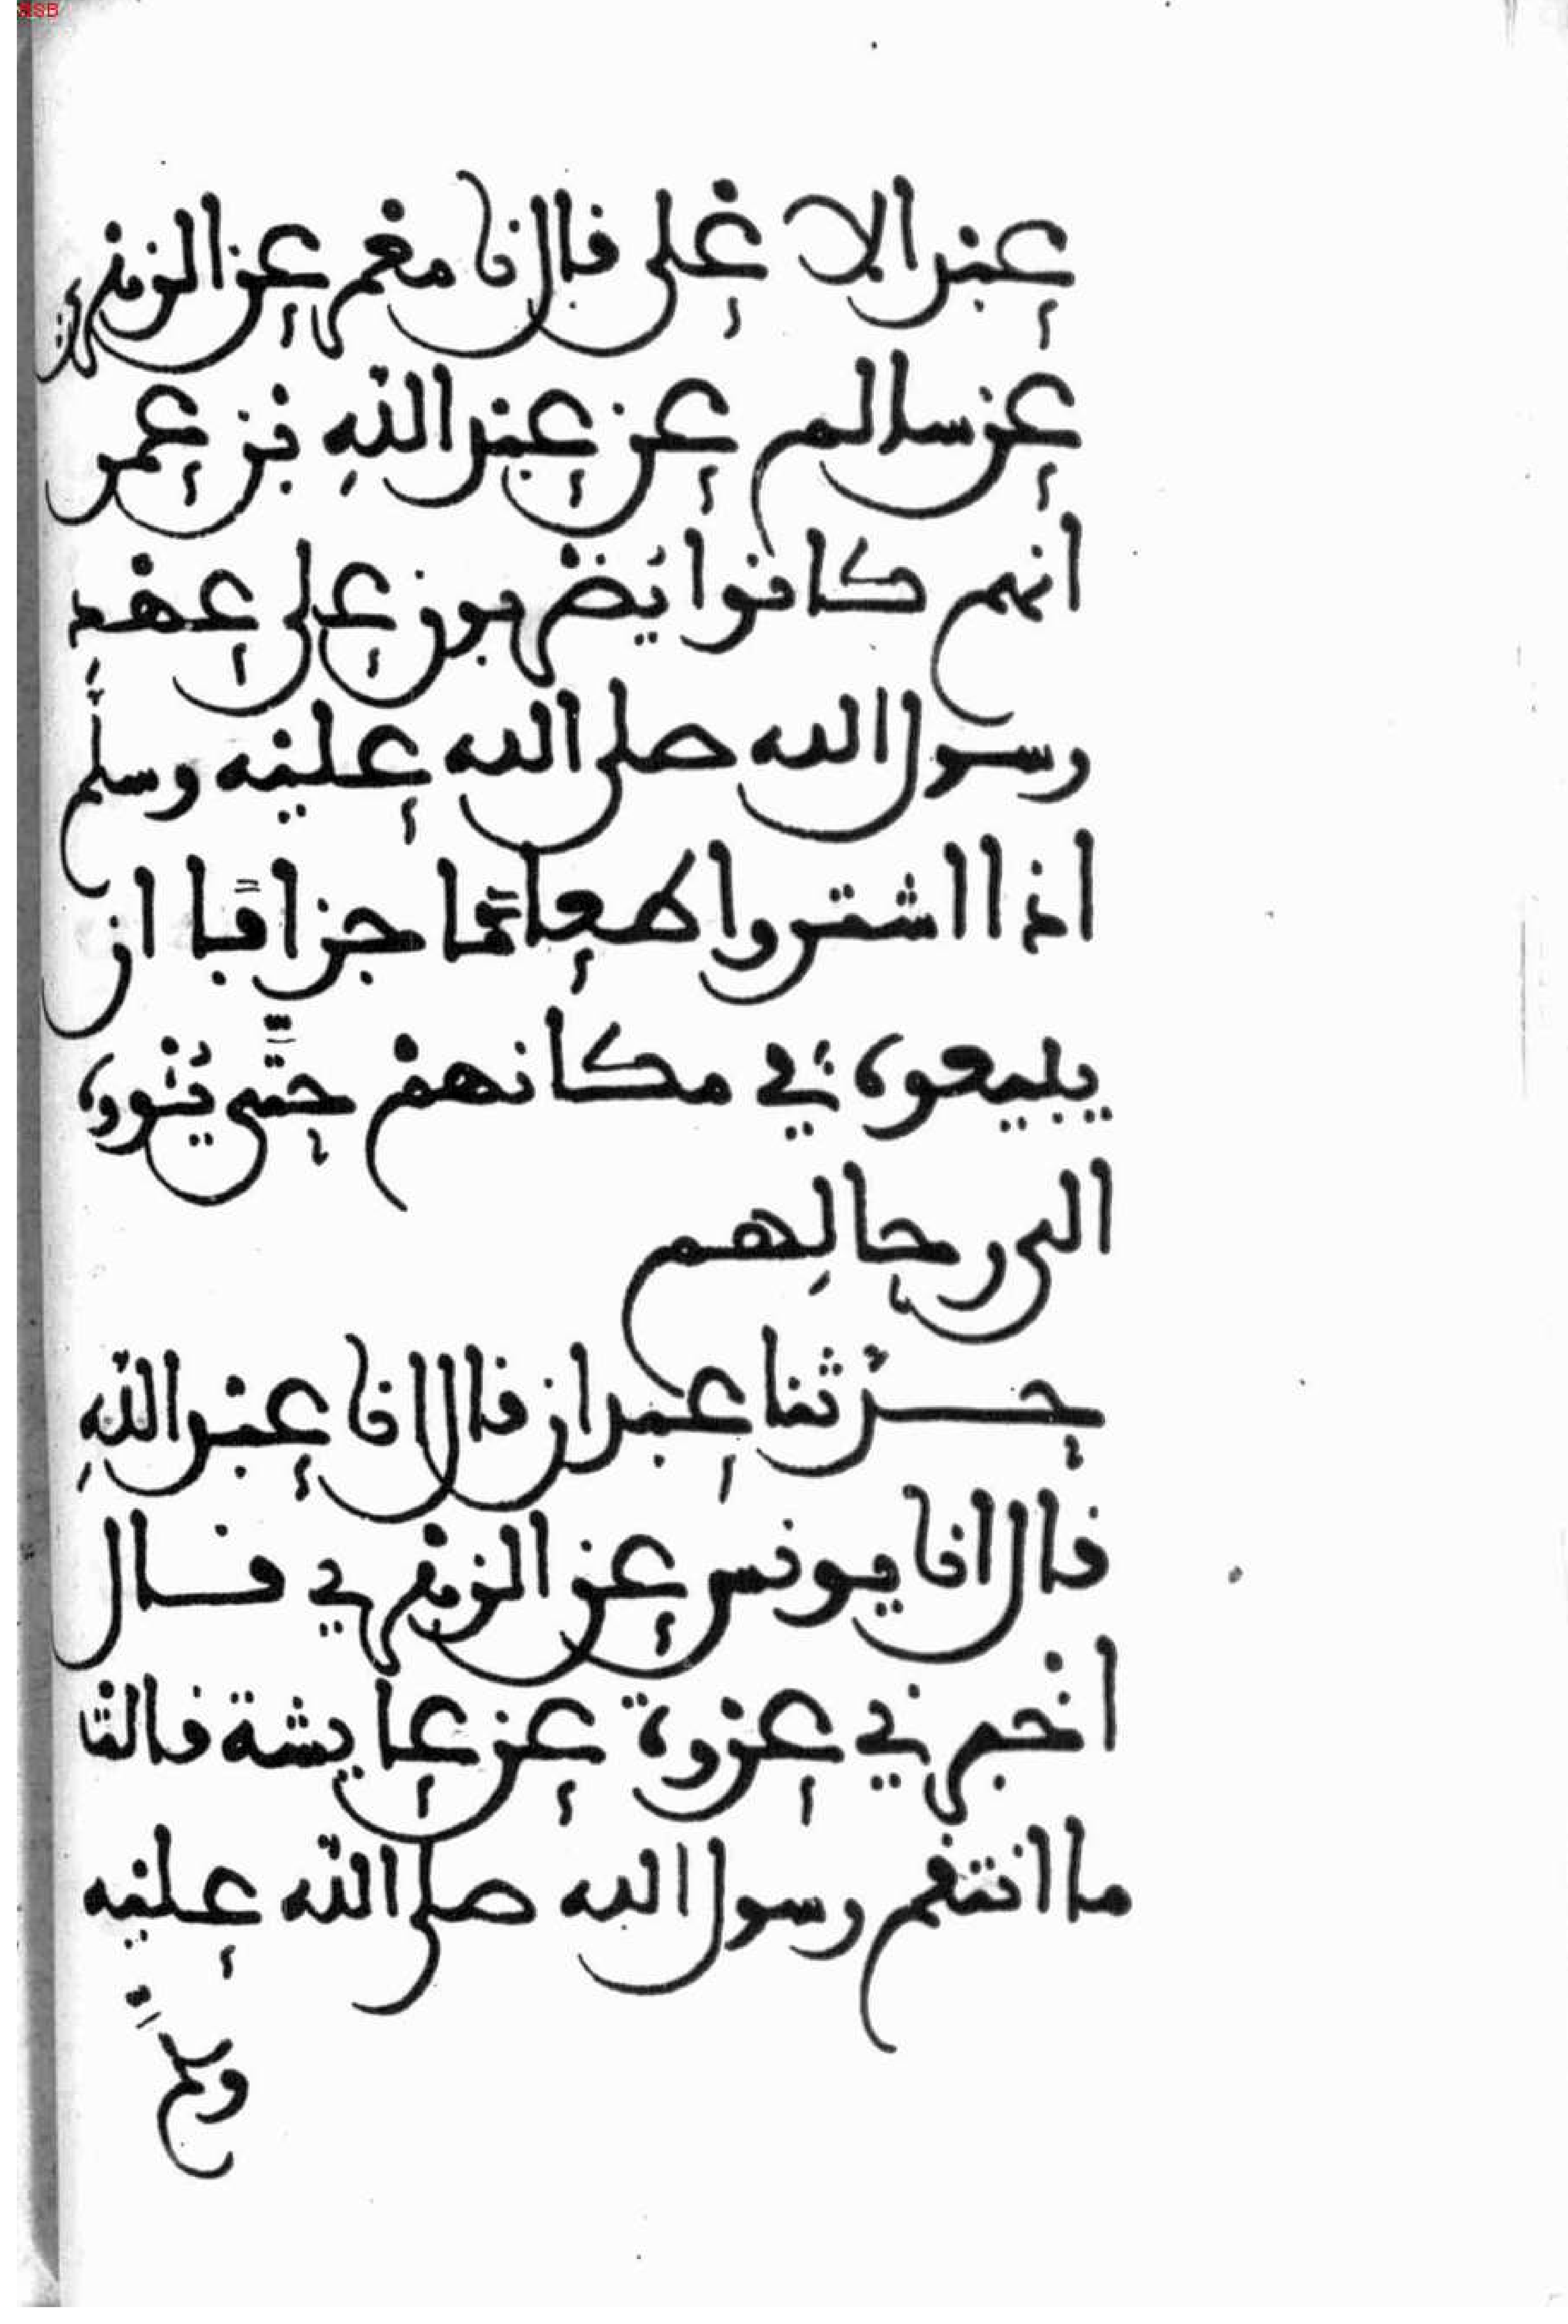 عبد الاعلى قال نا معمر عن الزهري
عن سالم عن عبد الله بن عمر
انهم كانوا يضربون على عهد
رسول الله صلى الله عليه وسلم
اذا اشتروا طعاما جزافا ان
يبيعوه في مكانهم حتى يئووه
الى رحالهم
حدثنا عبدان قال انا عبد الله
قال انا يونس عن الزهري قال
اخبرني عروة عن عايشة قالت
ما انتقم رسول الله صلى الله عليه
وسلم